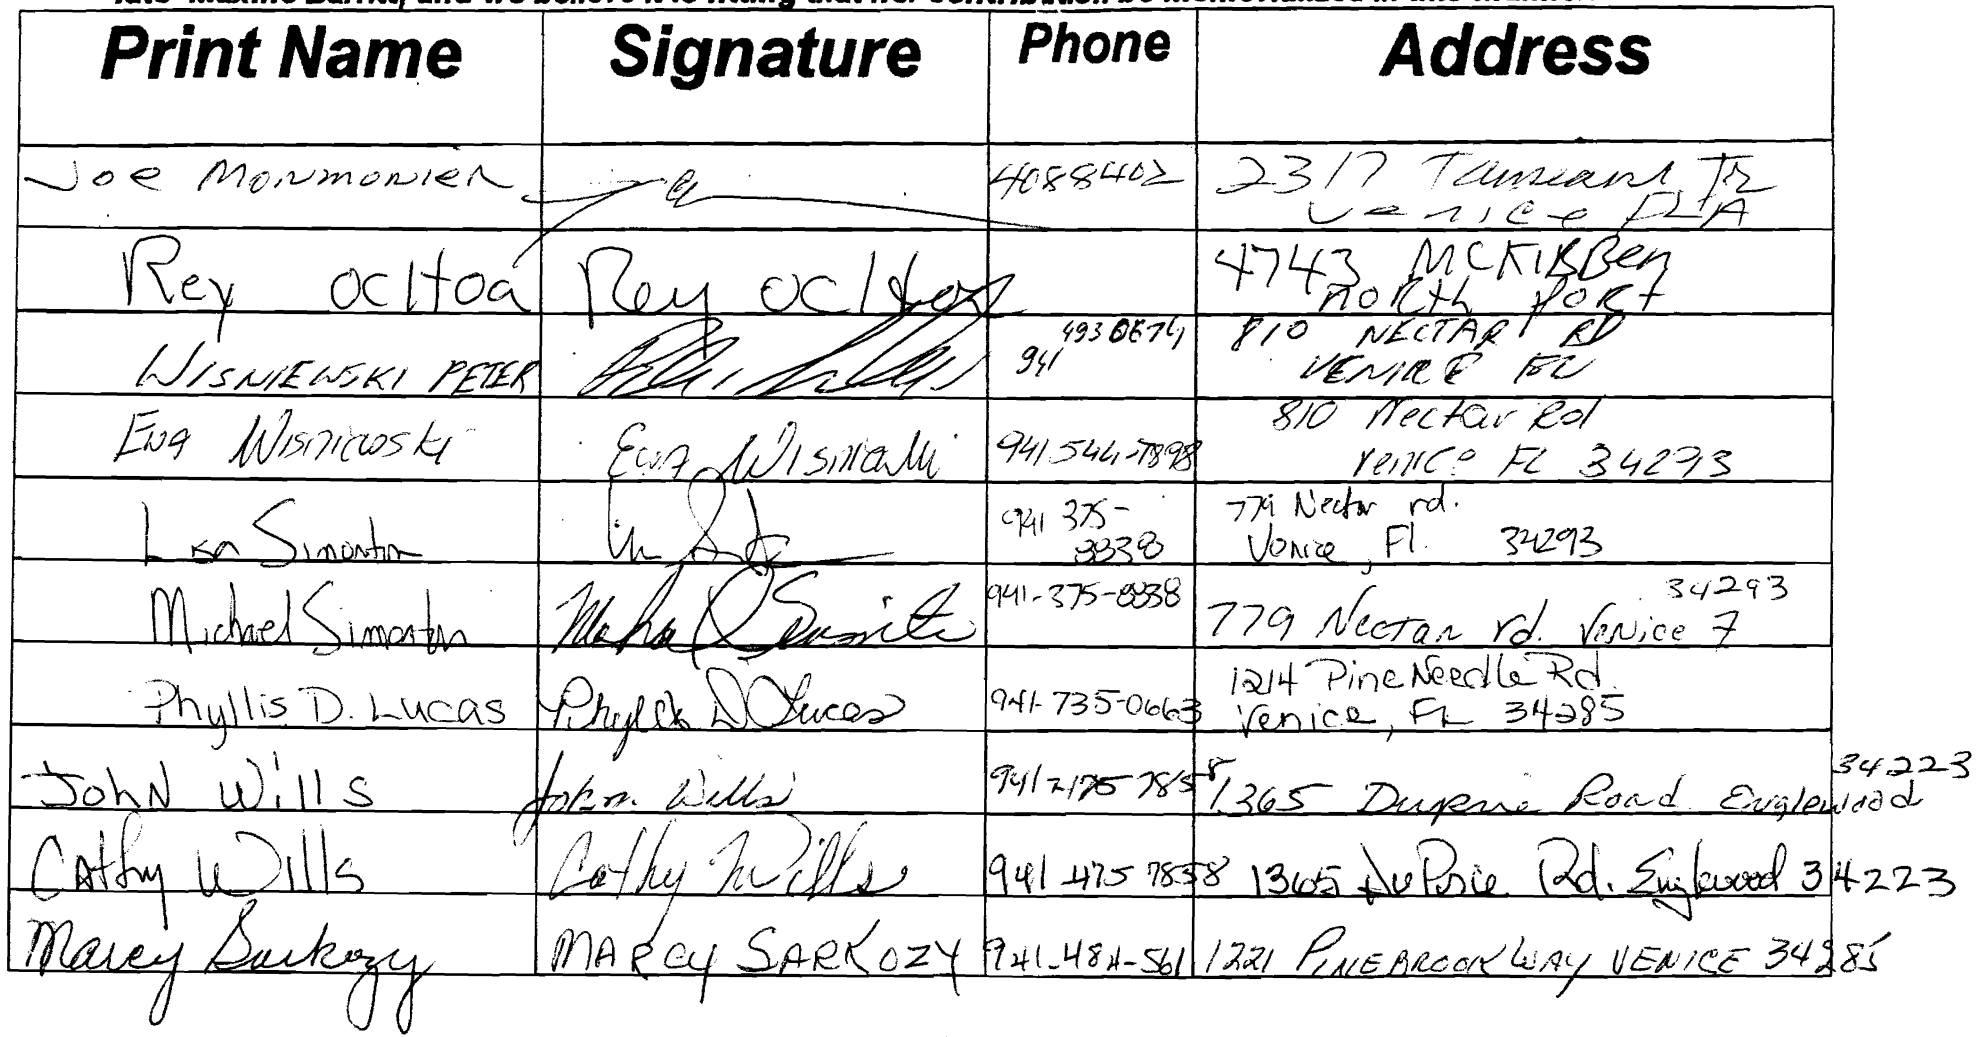 Print Name Signature Phone Address
Joe Monmonier 4088402 2317 Tamiami Tr
Venice FLA
Rey ocHoa Rey ocHoa 4743 McKiBBen
NORth PORt
WISNIEWSKI PETER 941 493 0674 810 NECTAR RD
VENICE FL
Ewa Wisniewski Ewa Wisniewski 941 544-7898 810 Nectar Rd
Venice FL 34293
Lisa Simonton 941 375- 779 Nectar rd.
8838 Venice, Fl. 34293
Michael Simonton 941-375-8838 34293
779 Nectar rd. Venice 7
Phyllis D. Lucas Phyllis D Lucas 941-735-0663 1214 Pine Needle Rd.
Venice, FL 34285
JohN Wills John Wills 1365 Road Englewood 34223
CAthy Wills Cathy Wills 941 475 7858 1365 Rd. Englewood 34223
Marcy Sarkozy MARCY SARKOZY 941-484-561 1221 PINEBROOK WAY VENICE 34285